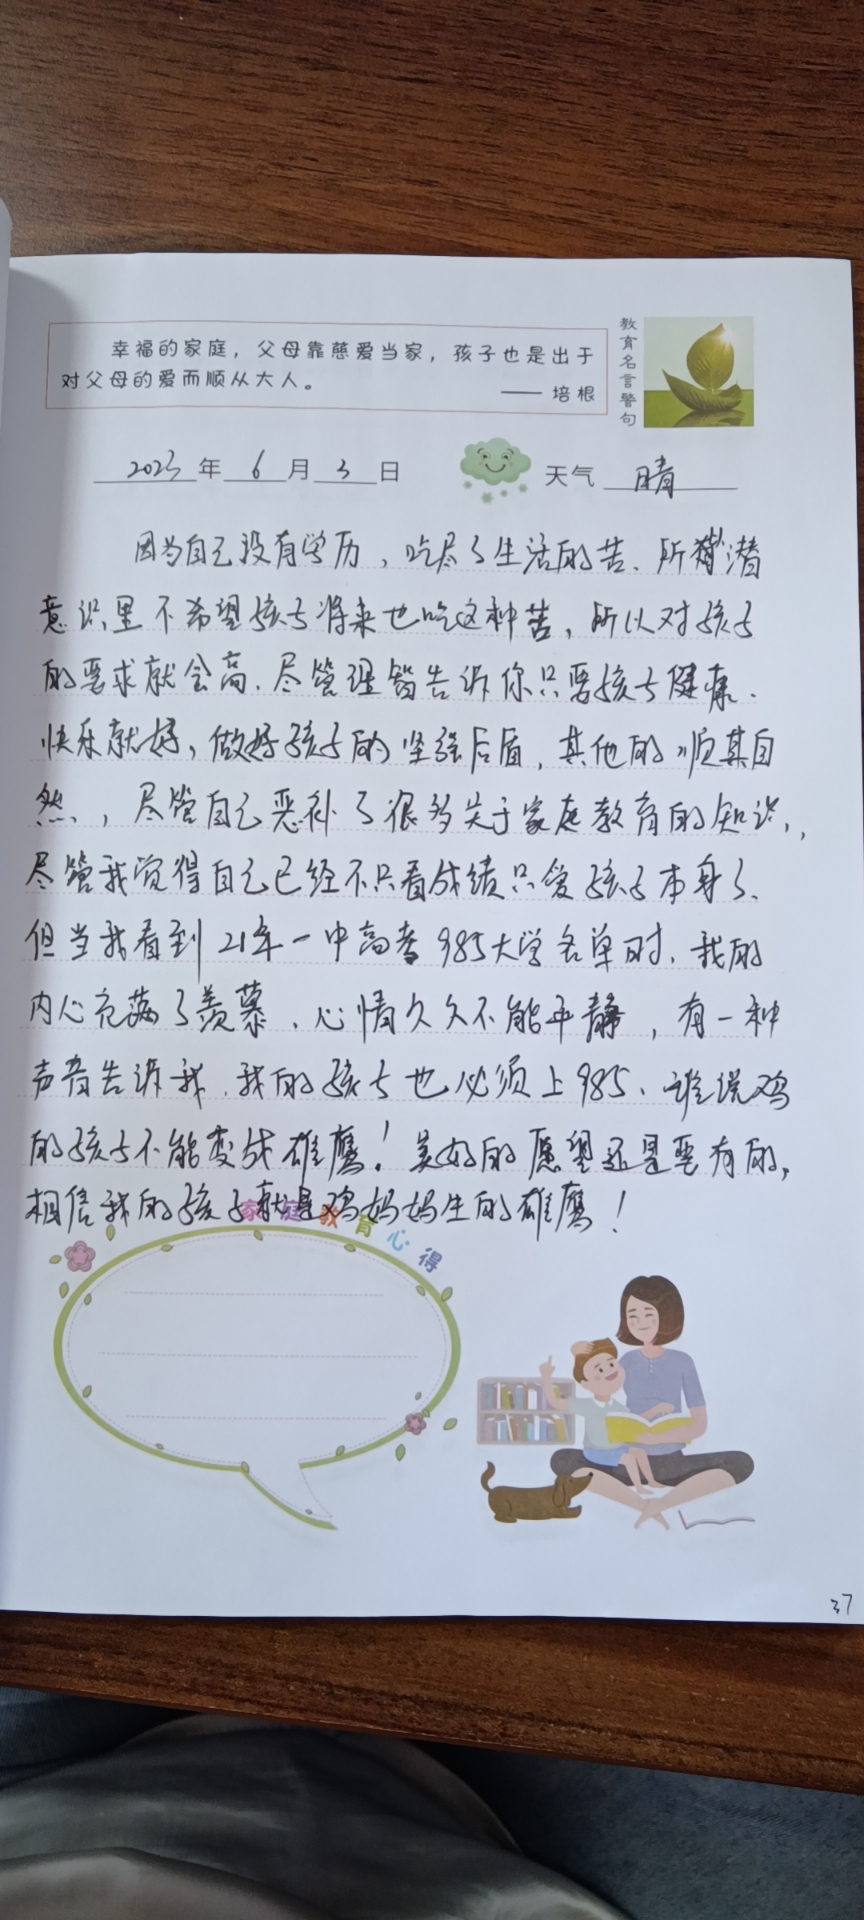 幸福的家庭，父母靠慈爱当家，孩子也是出于
对父母的爱而顺从大人。
—— 培根
教育名言警句
2023年6月3日 天气 晴
因为自己没有学历，吃尽了生活的苦、所有潜
意识里不希望孩子将来也吃这种苦，所以对孩子
的要求就会高、尽管理智告诉你只要孩子健康、
快乐就好，做好孩子的坚强后盾，其他的顺其自
然，尽管自己恶补了很多关于家庭教育的知识，
尽管我觉得自己已经不只看成绩只爱孩子本身了、
但当我看到21年一中高考985大学名单时、我的
内心充满了羡慕、心情久久不能平静，有一种
声音告诉我、我的孩子也必须上985、谁说鸡
的孩子不能变成雄鹰！美好的愿望还是要有的，
相信我的孩子就是鸡妈妈生的雄鹰！
家庭教育心得
37